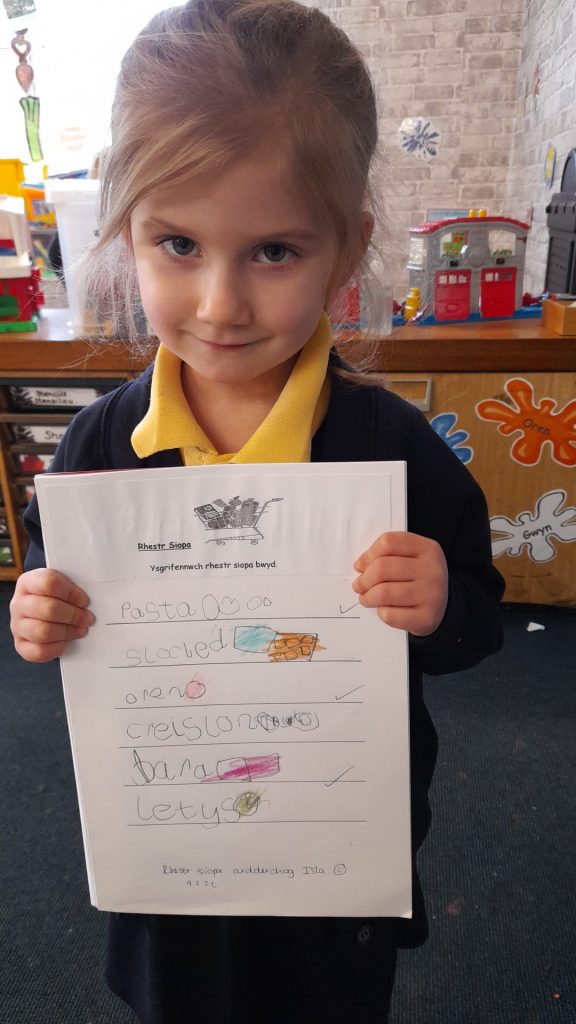 Stencils
Stensiliau
Oren
Gwyn
Rhestr Siopa
Ysgrifennwch rhestr siopa bwyd.
Pasta
slooled
oren
creision
bara
letys
Rhestr siopa ardderchog Isla
9.2.22